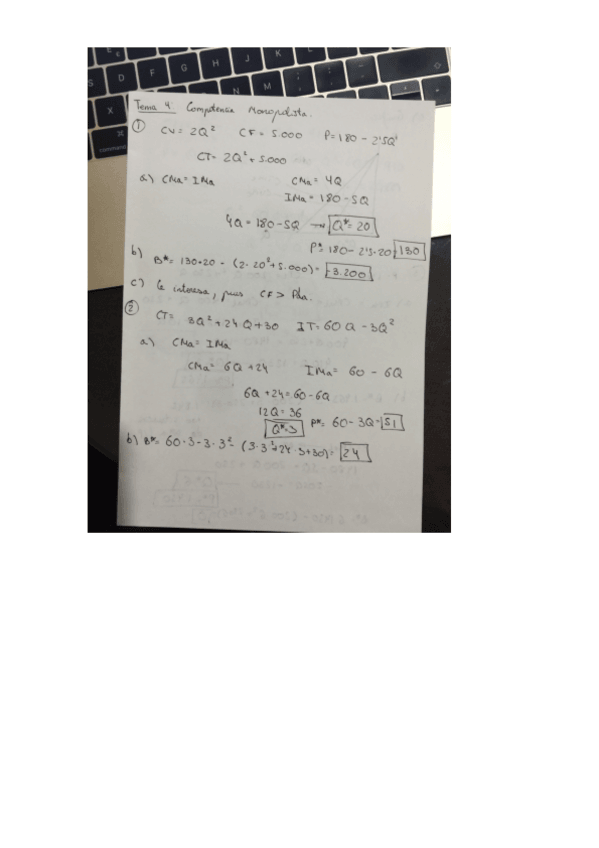 Tema 4: Competencia Monopolista.
① CV = 2Q² CF = 5.000 P = 180 - 2'5Q
CT = 2Q² + 5.000
a) CMa = IMa CMa = 4Q
IMa = 180 - 5Q
4Q = 180 - 5Q → Q* = 20
P* = 180 - 2'5·20 = 130
b) B* = 130·20 - (2·20² + 5.000) = -3.200
c) Le interesa, pues CF >
② CT = 3Q² + 24Q + 30 IT = 60Q - 3Q²
a) CMa = IMa
CMa = 6Q + 24 IMa = 60 - 6Q
6Q + 24 = 60 - 6Q
12Q = 36
Q* = 3 P* = 60 - 3Q = 51
b) B* = 60·3 - 3·3² - (3·3² + 24·3 + 30) = 24
command
S D F G H J K L
X
N M